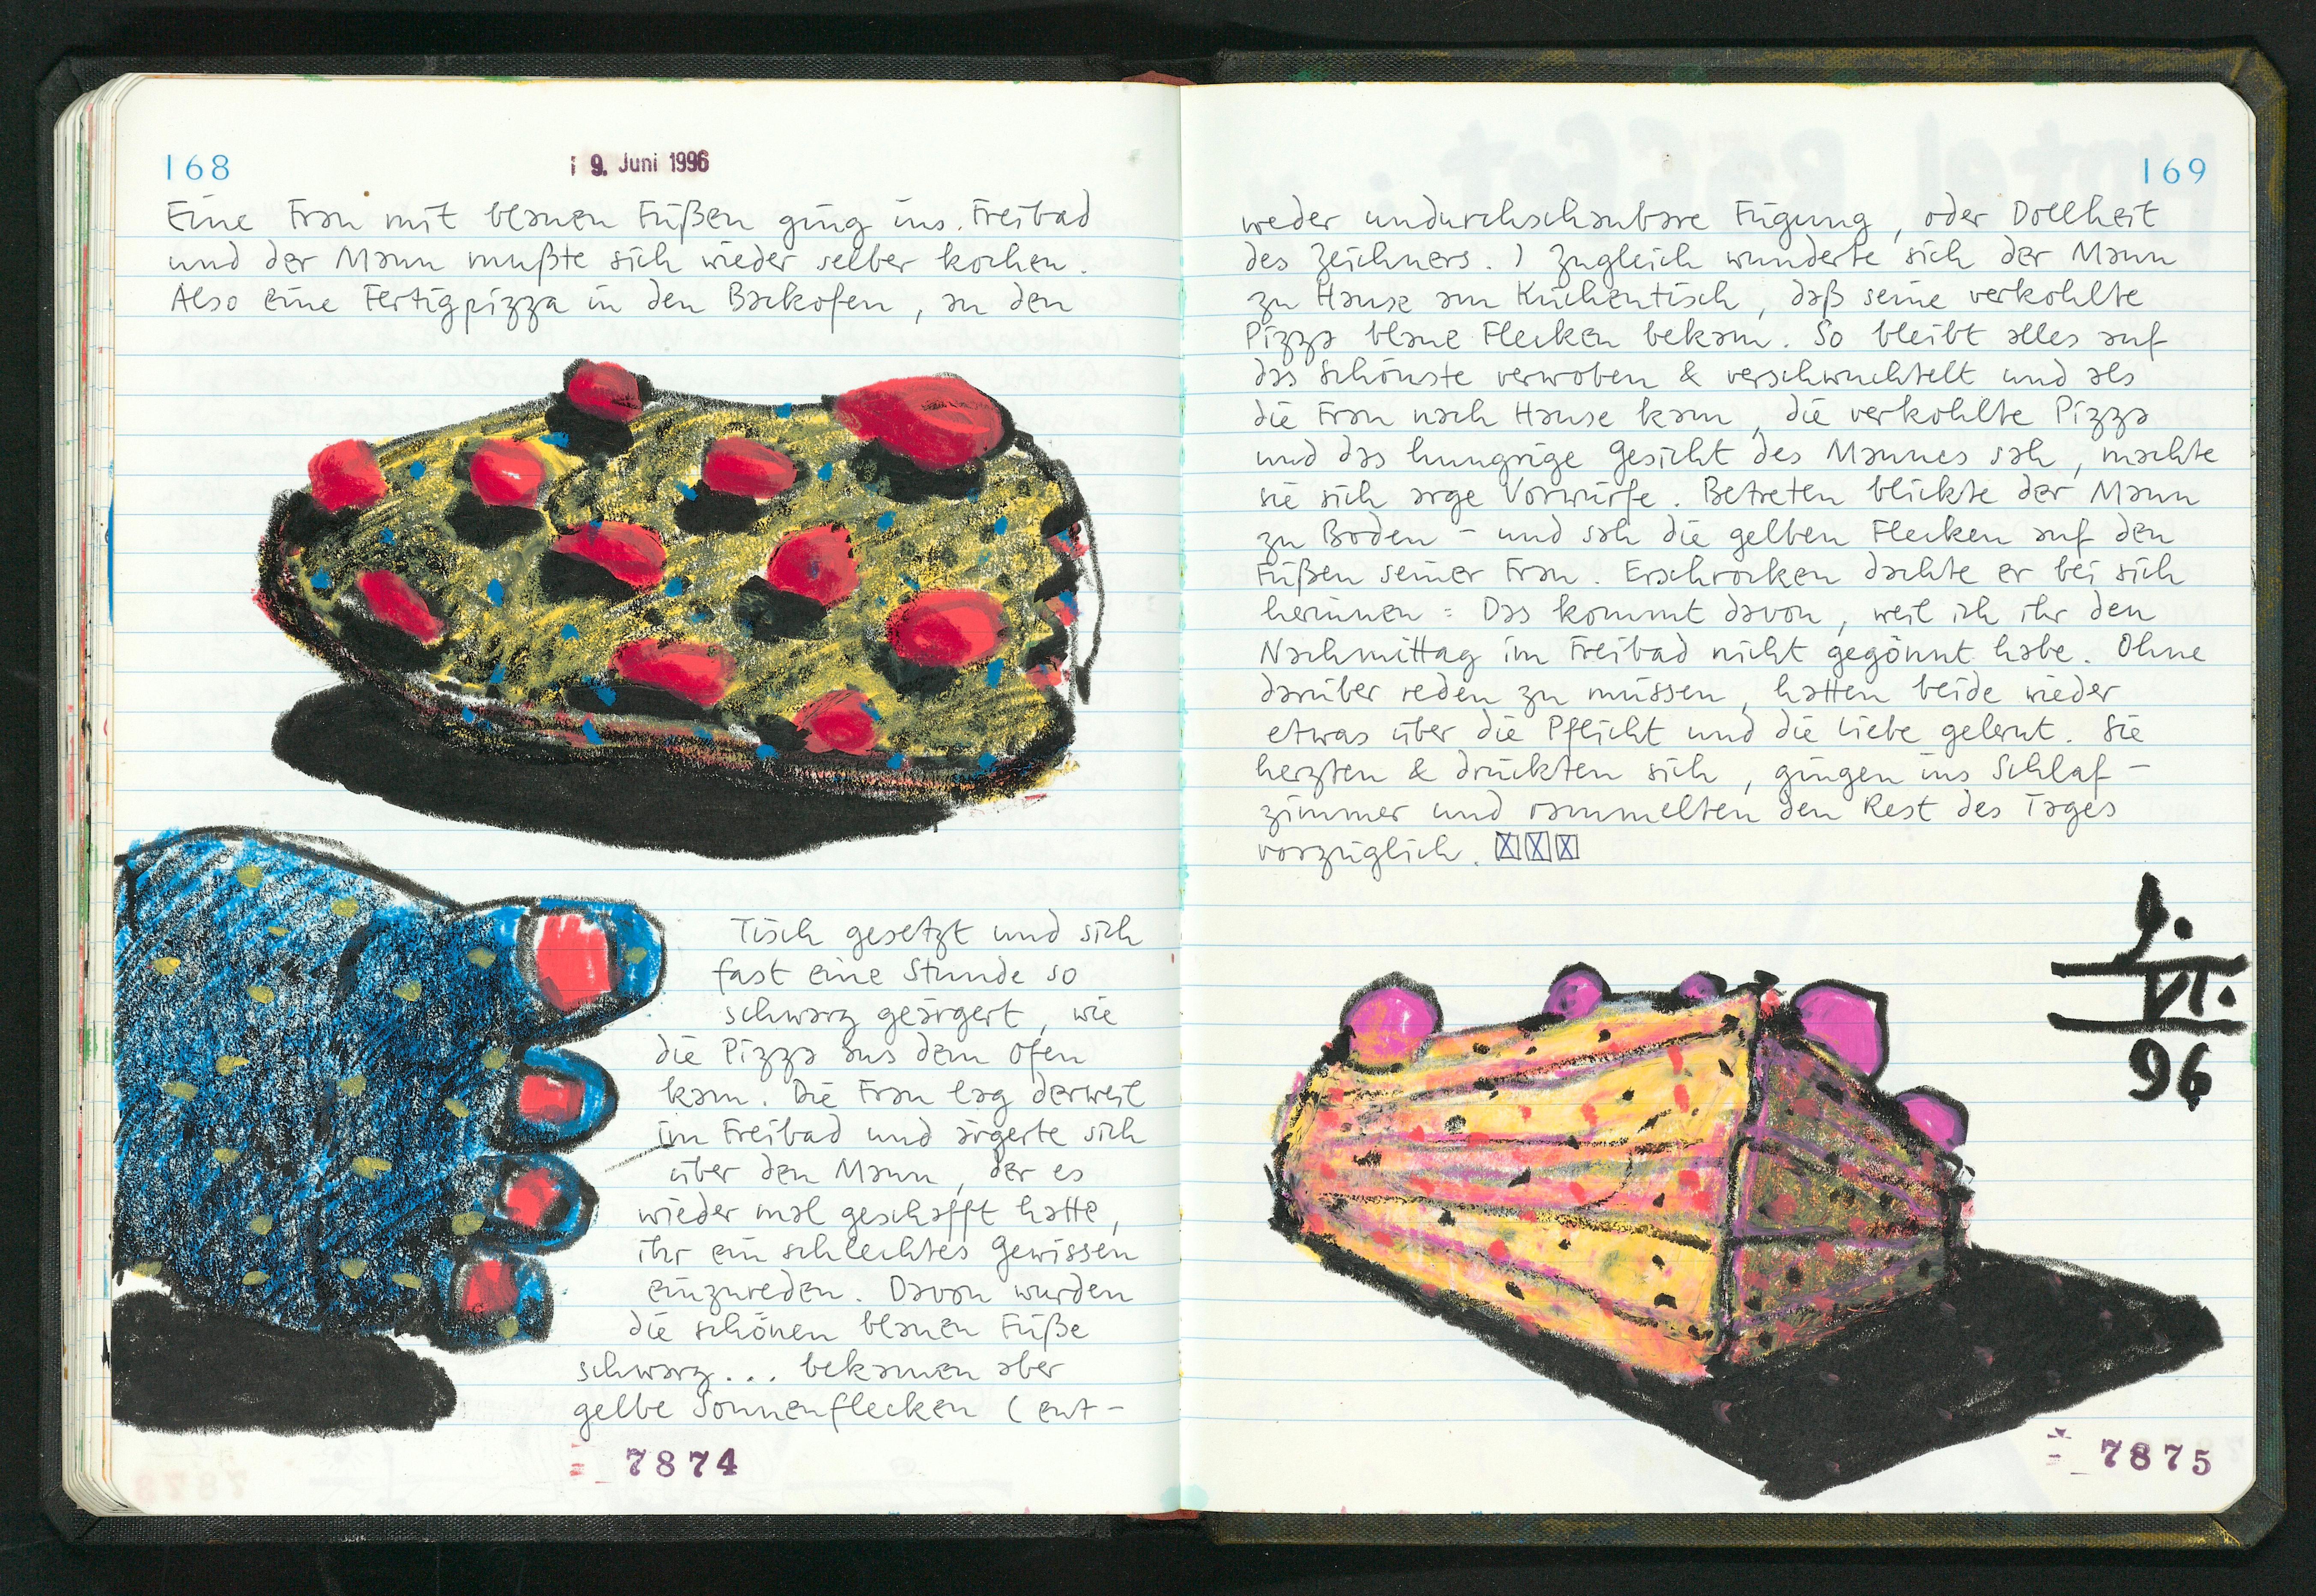 168
19. Juni 1996
Eine Frau mit blauen Füßen ging ins Freibad
und der Mann mußte sich wieder selber kochen.
Also eine Fertigpizza in den Backofen, an den
Tisch gesetzt und sich
fast eine Stunde so
schwarz geärgert, wie
die Pizza aus dem Ofen
kam. Die Frau lag derweil
im Freibad und ärgerte sich
über den Mann, der es
wieder mal geschafft hatte,
ihr ein schlechtes Gewissen
einzureden. Davon wurden
die schönen blauen Füße
schwarz... bekamen aber
gelbe Sonnenflecken (ent-
7874
169
weder undurchschaubare Fügung, oder Dollheit
des Zeichners.) Zugleich wunderte sich der Mann
zu Hause am Küchentisch, daß seine verkohlte
Pizza blaue Flecken bekam. So bleibt alles auf
das Schönste verwoben & verschwuchtelt und als
die Frau nach Hause kam, die verkohlte Pizza
und das hungrige Gesicht des Mannes sah, machte
sie sich arge Vorwürfe. Betreten blickte der Mann
zu Boden - und sah die gelben Flecken auf den
Füßen seiner Frau. Erschrocken dachte er bei sich
herinnen: Das kommt davon, weil ich ihr den
Nachmittag im Freibad nicht gegönnt habe. Ohne
darüber reden zu müssen, hatten beide wieder
etwas über die Pflicht und die Liebe gelernt. Sie
herzten & drückten sich, gingen ins Schlaf-
zimmer und rammelten den Rest des Tages
vorzüglich.
9.
VI.
96
7875